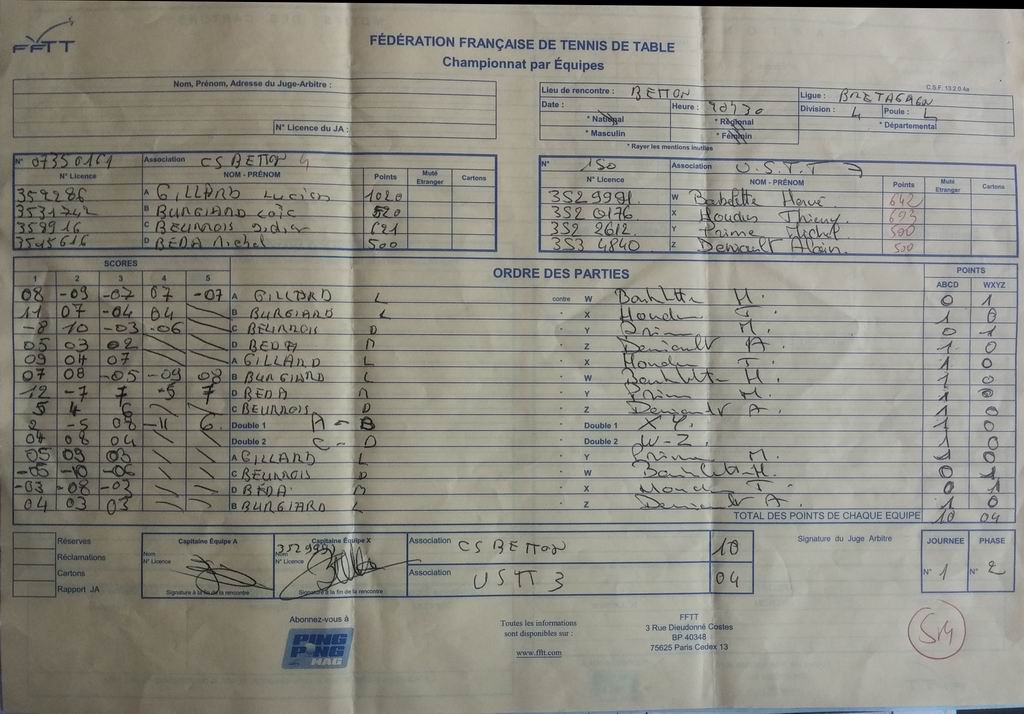 FFTT
FÉDÉRATION FRANÇAISE DE TENNIS DE TABLE
Championnat par Équipes
C.S.F. 13.2.0.4a
Nom, Prénom, Adresse du Juge-Arbitre :
N° Licence du JA :
Lieu de rencontre : BETTON
Ligue : BRETAGNE
Date : Heure : 20h30
Division : 4 Poule : L
* National * Régional * Départemental
* Masculin * Féminin
* Rayer les mentions inutiles
N° 07350161 Association CS BETTON 4
N° Licence NOM - PRÉNOM Points Muté Etranger Cartons
A GILLARD Lucien 1020
B BURGIARD Loïc 520
359916 C BEURNOIS Didier 621
D BEDA Michel 500
N° 150 Association U.S.T.T 7
N° Licence NOM - PRÉNOM Points Muté Etranger Cartons
352 9991 W Hervé 642
352 0176 X Houdus Thierry 693
352 2612 Y Prime Michel 500
353 4840 Z Alain 500
SCORES ORDRE DES PARTIES POINTS
1 2 3 4 5 ABCD WXYZ
08 -09 -07 07 -07 A GILLARD L contre W H. 0 1
11 07 -04 04 B BURGIARD L X T. 1 0
-8 10 -03 -06 C BEURNOIS D Y M. 0 1
05 03 02 D BEDA M Z A. 1 0
09 04 07 A GILLARD L X T. 1 0
07 08 -05 -09 08 B BURGIARD L W H. 1 0
12 -7 7 -5 7 D BEDA M Y M. 1 0
5 4 6 C BEURNOIS D Z A. 1 0
2 -5 08 -11 6 Double 1 A - B Double 1 X Y. 1 0
04 08 04 Double 2 C - D Double 2 W - Z. 1 0
05 09 03 A GILLARD L Y M. 1 0
-05 -10 -06 C BEURNOIS D W H. 0 1
-03 -08 -03 D BÉDA M X T. 0 1
04 03 03 B BURGIARD L Z A. 1 0
TOTAL DES POINTS DE CHAQUE EQUIPE 10 04
Réserves
Réclamations
Cartons
Rapport JA
Capitaine Équipe A
Nom
N° Licence
Signature à la fin de la rencontre
Capitaine Équipe X
Nom 352 9991
N° Licence
Signature à la fin de la rencontre
Association CS BETTON 10
Association USTT 3 04
Signature du Juge Arbitre
JOURNEE PHASE
N° 1 N° 2
Abonnez-vous à
PING PONG MAG
Toutes les informations
sont disponibles sur :
www.fftt.com
FFTT
3 Rue Dieudonné Costes
BP 40348
75625 Paris Cedex 13
SM